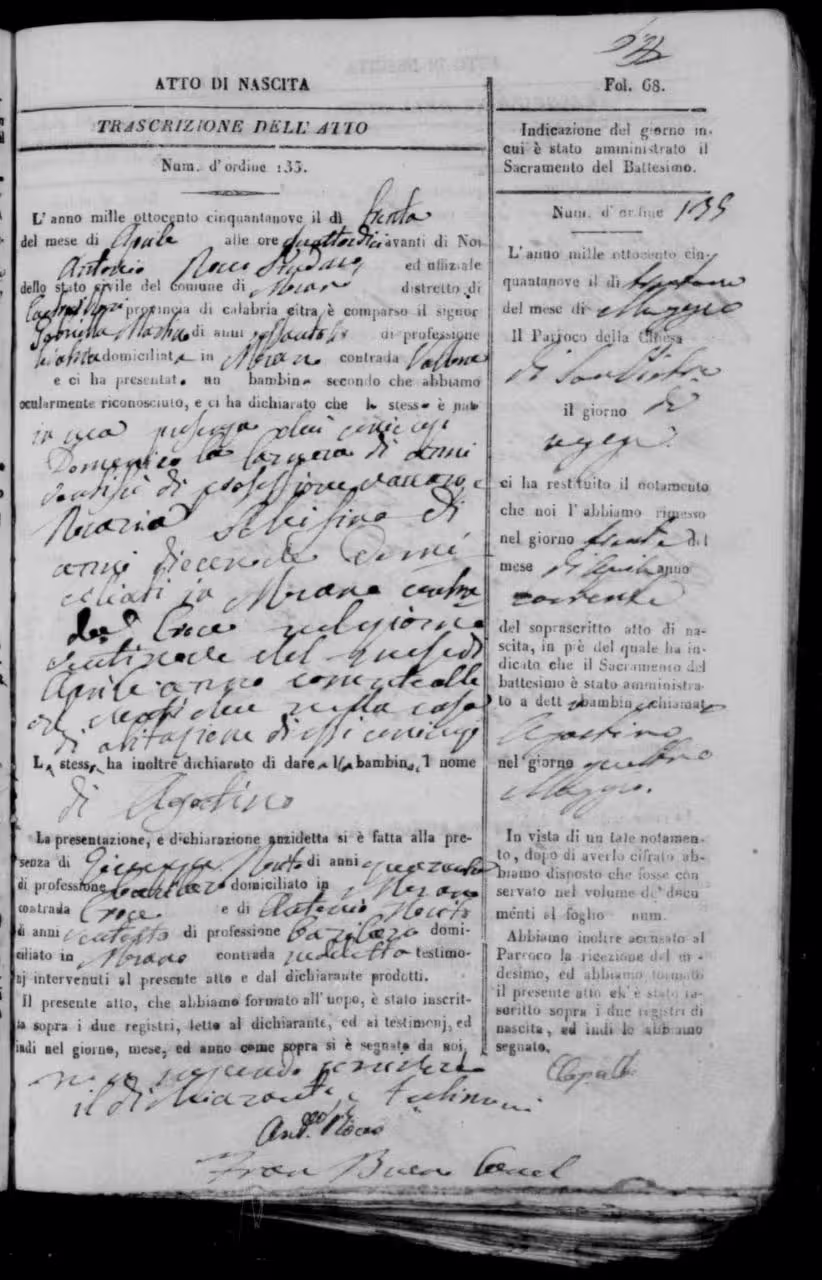 ATTO DI NASCITA
TRASCRIZIONE DELL' ATTO
Num. d' ordine 135.
L' anno mille ottocento cinquantanove il dì trenta
del mese di Aprile alle ore quattordici avanti di Noi
Antonio Rocco ed uffiziale
dello stato civile del comune di Morano distretto di
Castrovillari provincia di calabria citra è comparso il signor
di anni di professione
domiciliata in Morano contrada Vallone
e ci ha presentato un bambino secondo che abbiamo
ocularmente riconosciuto, e ci ha dichiarato che lo stesso è nato
in sua presenza dai coniugi
Domenico la di anni
ventisei di professione e
Maria di
anni diecenove domi
ciliati in Morano contra
da Croce nel giorno
ventinove del mese di
Aprile anno corrente alle
ore ventidue nella casa
di abitazione di essi coniugi
Lo stesso ha inoltre dichiarato di dare al bambino il nome
di Agostino
La presentazione, e dichiarazione anzidetta si è fatta alla pre-
senza di Giuseppe di anni
di professione domiciliato in Morano
contrada Croce e di Antonio
di anni ventotto di professione domi-
ciliato in Morano contrada suddetta testimo-
nj intervenuti al presente atto e dal dichiarante prodotti.
Il presente atto, che abbiamo formato all' uopo, è stato inscrit-
to sopra i due registri, letto al dichiarante, ed ai testimonj, ed
indi nel giorno, mese, ed anno come sopra si è segnato da noi,
non sapendo scrivere
il dichiarante e testimoni
Ant.º Rocco
Fol. 68.
Indicazione del giorno in-
cui è stato amministrato il
Sacramento del Battesimo.
Num. d' ordine 135
L' anno mille ottocento cin-
quantanove il dì
del mese di Maggio
Il Parroco della Chiesa
di San Pietro
il giorno di
oggi
ci ha restituito il notamento
che noi l' abbiamo rimesso
nel giorno trenta del
mese di Aprile anno
corrente
del soprascritto atto di na-
scita, in piè del quale ha in-
dicato che il Sacramento del
battesimo è stato amministra-
to a detto bambino chiamato
Agostino
nel giorno quattro
Maggio.
In vista di un tale notamen-
to, dopo di averlo cifrato ab-
biamo disposto che fosse con
servato nel volume de' docu
menti al foglio num.
Abbiamo inoltre accusato al
Parroco la ricezione del me-
desimo, ed abbiamo formato
il presente atto ch' è stato in-
scritto sopra i due registri di
nascita, ed indi lo abbiamo
segnato.